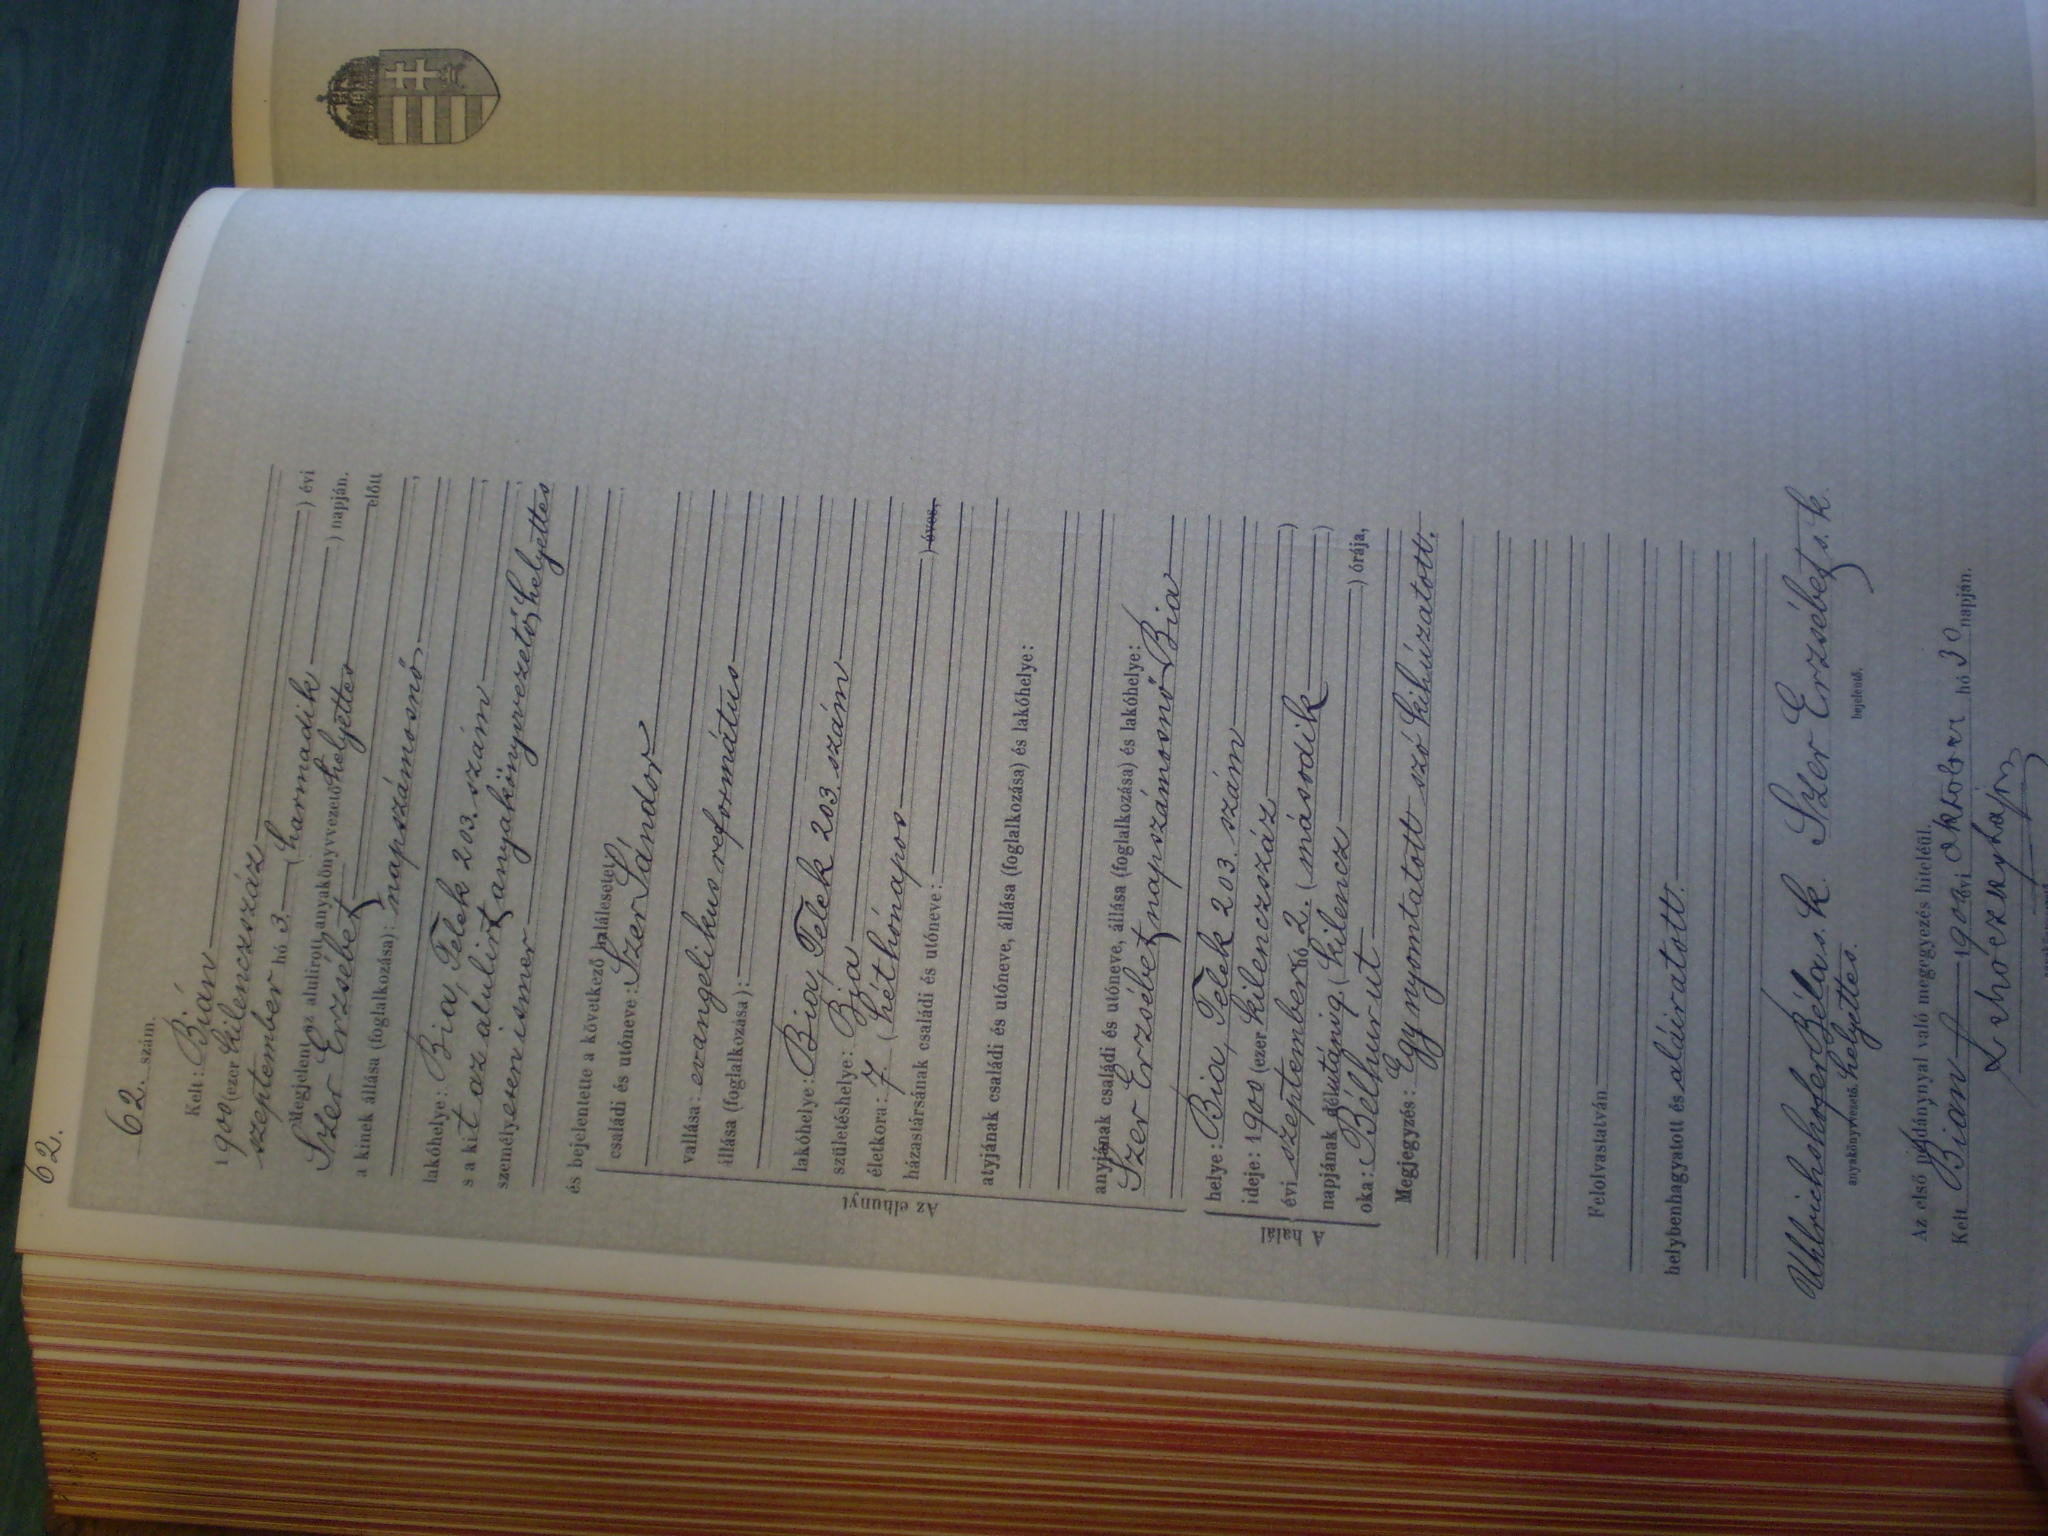 62.
62. szám.
Kelt: Bián
1900 (ezer kilenczszáz
) évi
szeptember hó 3. (harmadik
) napján.
Megjelent az alulirott anyakönyvvezető helyettes
előtt
Szer Erzsébet
a kinek állása (foglalkozása): napszámosnő,
lakóhelye: Bia, Telek 203. szám
s a kit az alulirt anyakönyvvezető helyettes
személyesen ismer
és bejelentette a következő halálesetet:
Az elhunyt
családi és utóneve: Szer Sándor
vallása: evangelikus református
állása (foglalkozása):
lakóhelye: Bia, Telek 203. szám
születéshelye: Bia
életkora: 7 (hét hónapos
) éves,
házastársának családi és utóneve:
atyjának családi és utóneve, állása (foglalkozása) és lakóhelye:
anyjának családi és utóneve, állása (foglalkozása) és lakóhelye:
Szer Erzsébet napszámosnő Bia
A halál
helye: Bia, Telek 203. szám
ideje: 1900 (ezer kilenczszáz
)
évi szeptember hó 2. (második
)
napjának délutánig (kilencz
) órája,
oka: Bélhurut
Megjegyzés: Egy nyomtatott szó kihúzatott.
Felolvastatván
helybenhagyatott és aláiratott.
Uhlrichshofer Béla s. k. Szer Erzsébet s. k.
anyakönyvvezető helyettes.
bejelentő.
Az első példánynyal való megegyezés hiteléül.
Kelt Bian 1900 évi oktober hó 30 napján.